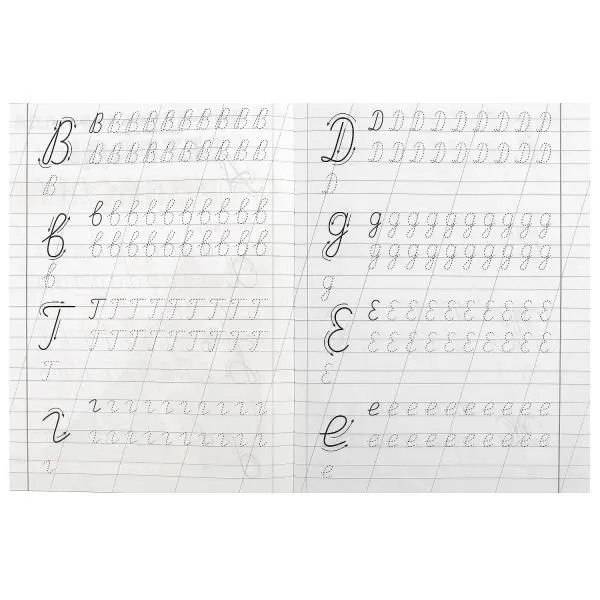 В
В В В В В В В В В В
В В В В В В В В В В
В
в
в в в в в в в в в в
в в в в в в в в в в
в
Г
Г Г Г Г Г Г Г Г Г Г
Г Г Г Г Г Г Г Г Г Г
Г
г
г г г г г г г г г г
г г г г г г г г г г
г
Д
Д Д Д Д Д Д Д Д Д Д
Д Д Д Д Д Д Д Д Д Д
Д
д
д д д д д д д д д д
д д д д д д д д д д
д
Е
Е Е Е Е Е Е Е Е Е Е
Е Е Е Е Е Е Е Е Е Е
Е
е
е е е е е е е е е е
е е е е е е е е е е
е